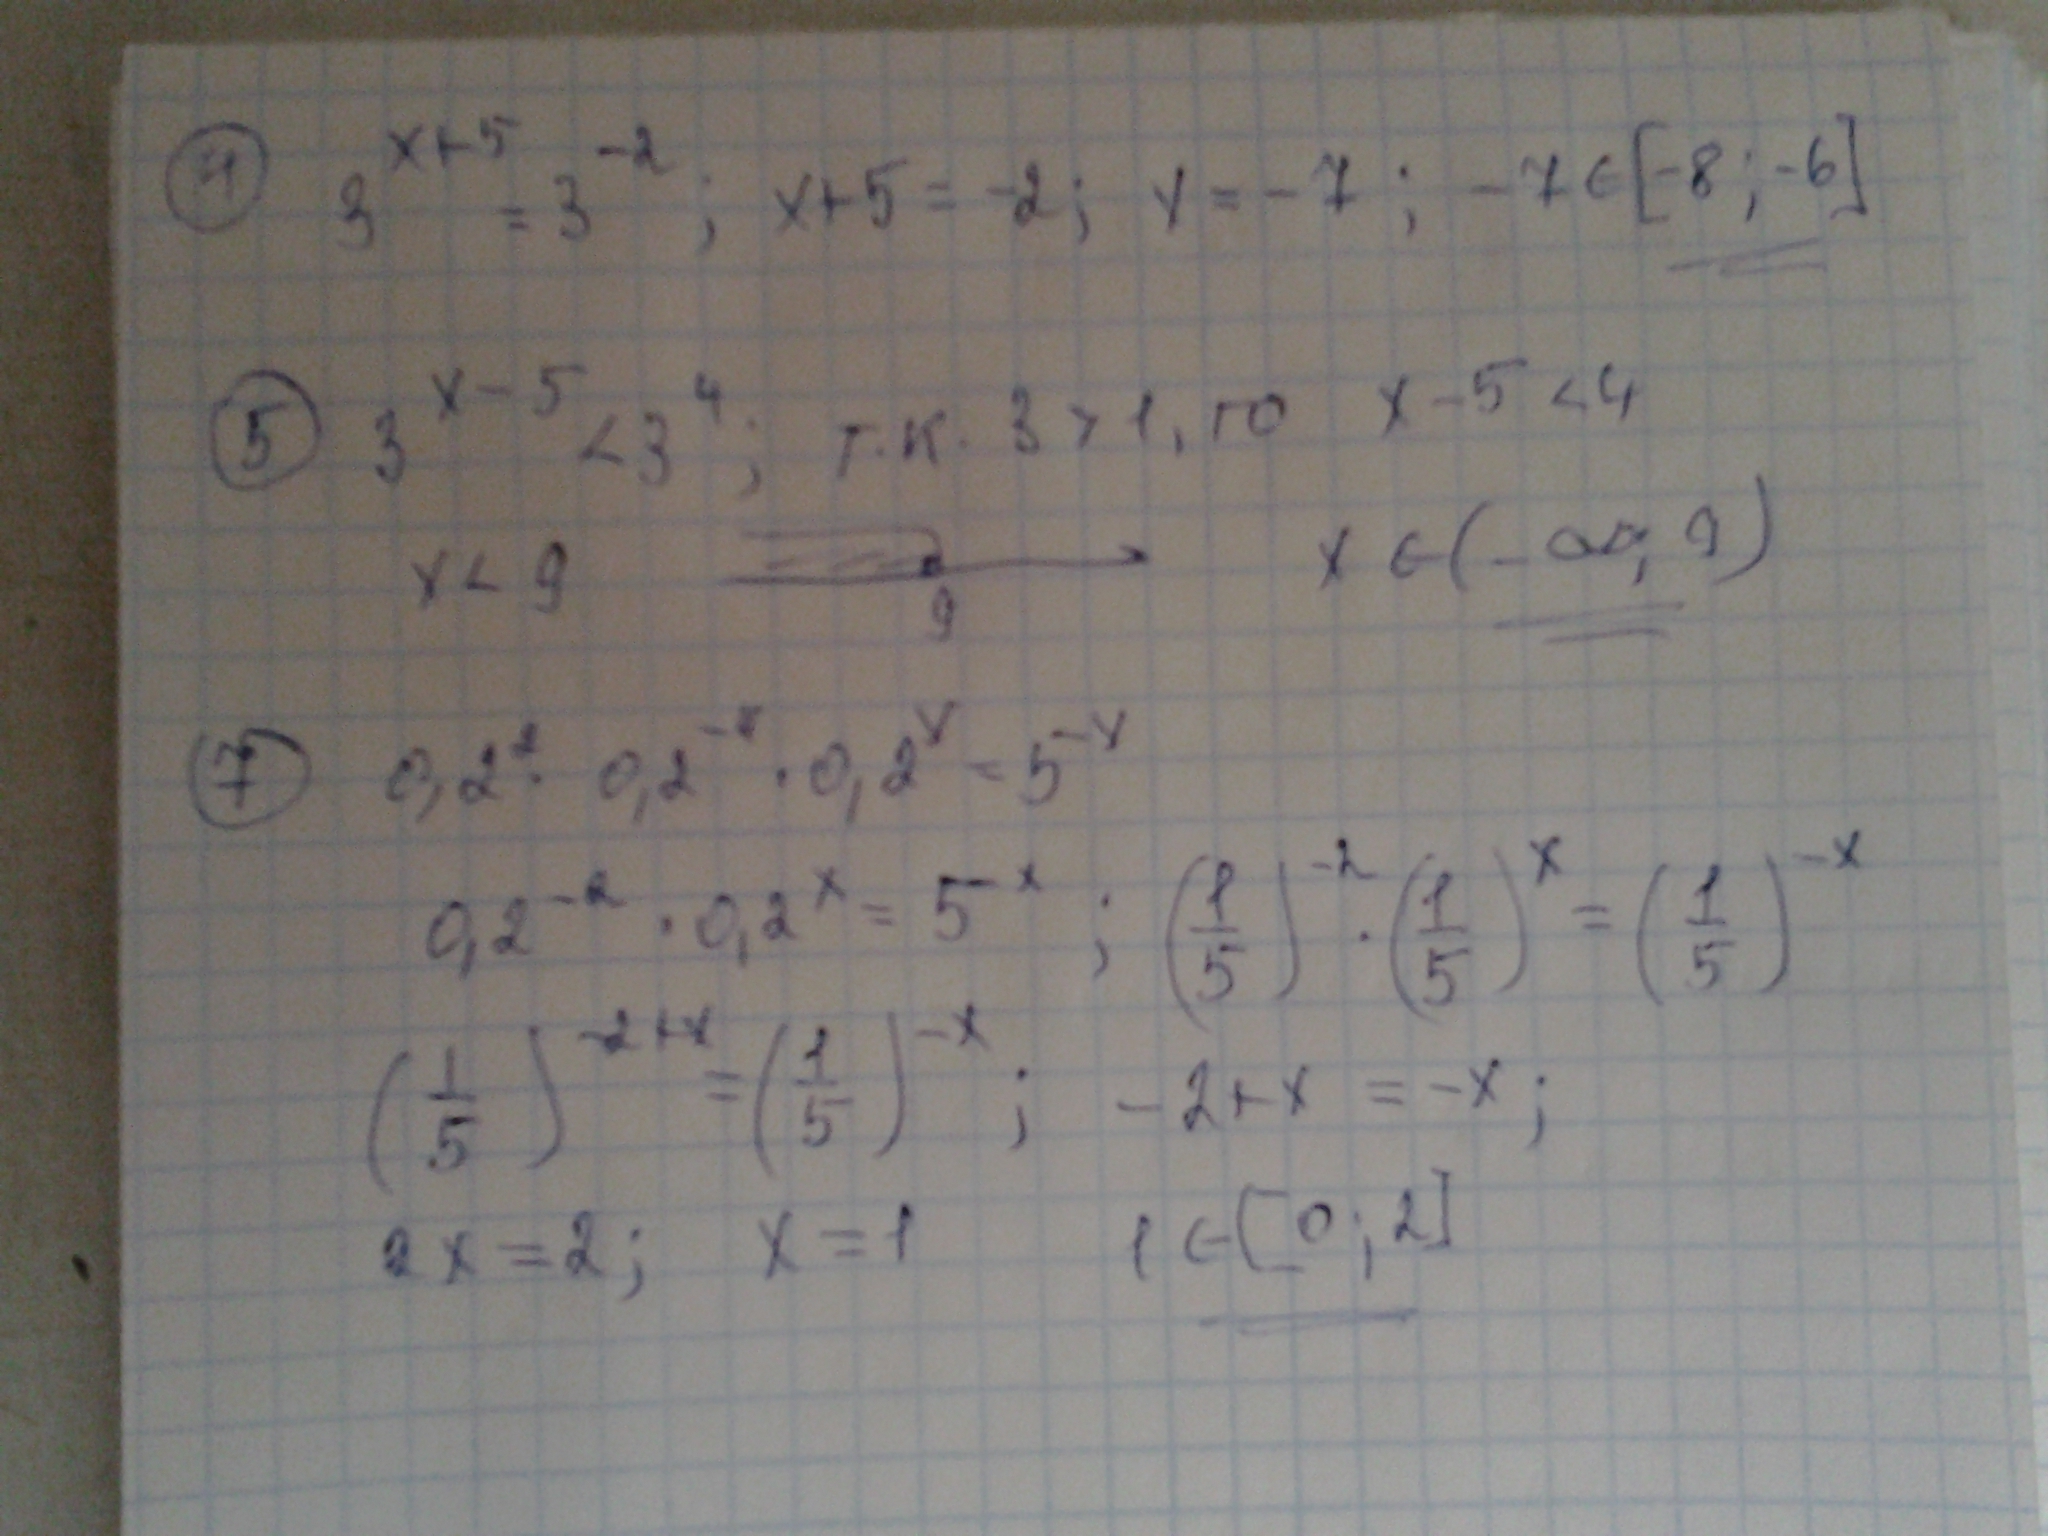 ④ 3^{x+5} = 3^{-2}; x+5 = -2; x = -7; -7 ∈ [-8; -6]
⑤ 3^{x-5} < 3^4; т.к. 3 > 1, то x - 5 < 4
x < 9 9 x ∈ (-∞; 9)
⑦ 0,2 · 0,2 · 0,2^x = 5^{-x}
0,2^{-2} · 0,2^x = 5^x; (1/5)^{-2} · (1/5)^x = (1/5)^{-x}
(1/5)^{-2+x} = (1/5)^{-x}; -2+x = -x;
2x = 2; x = 1 1 ∈ [0; 2]